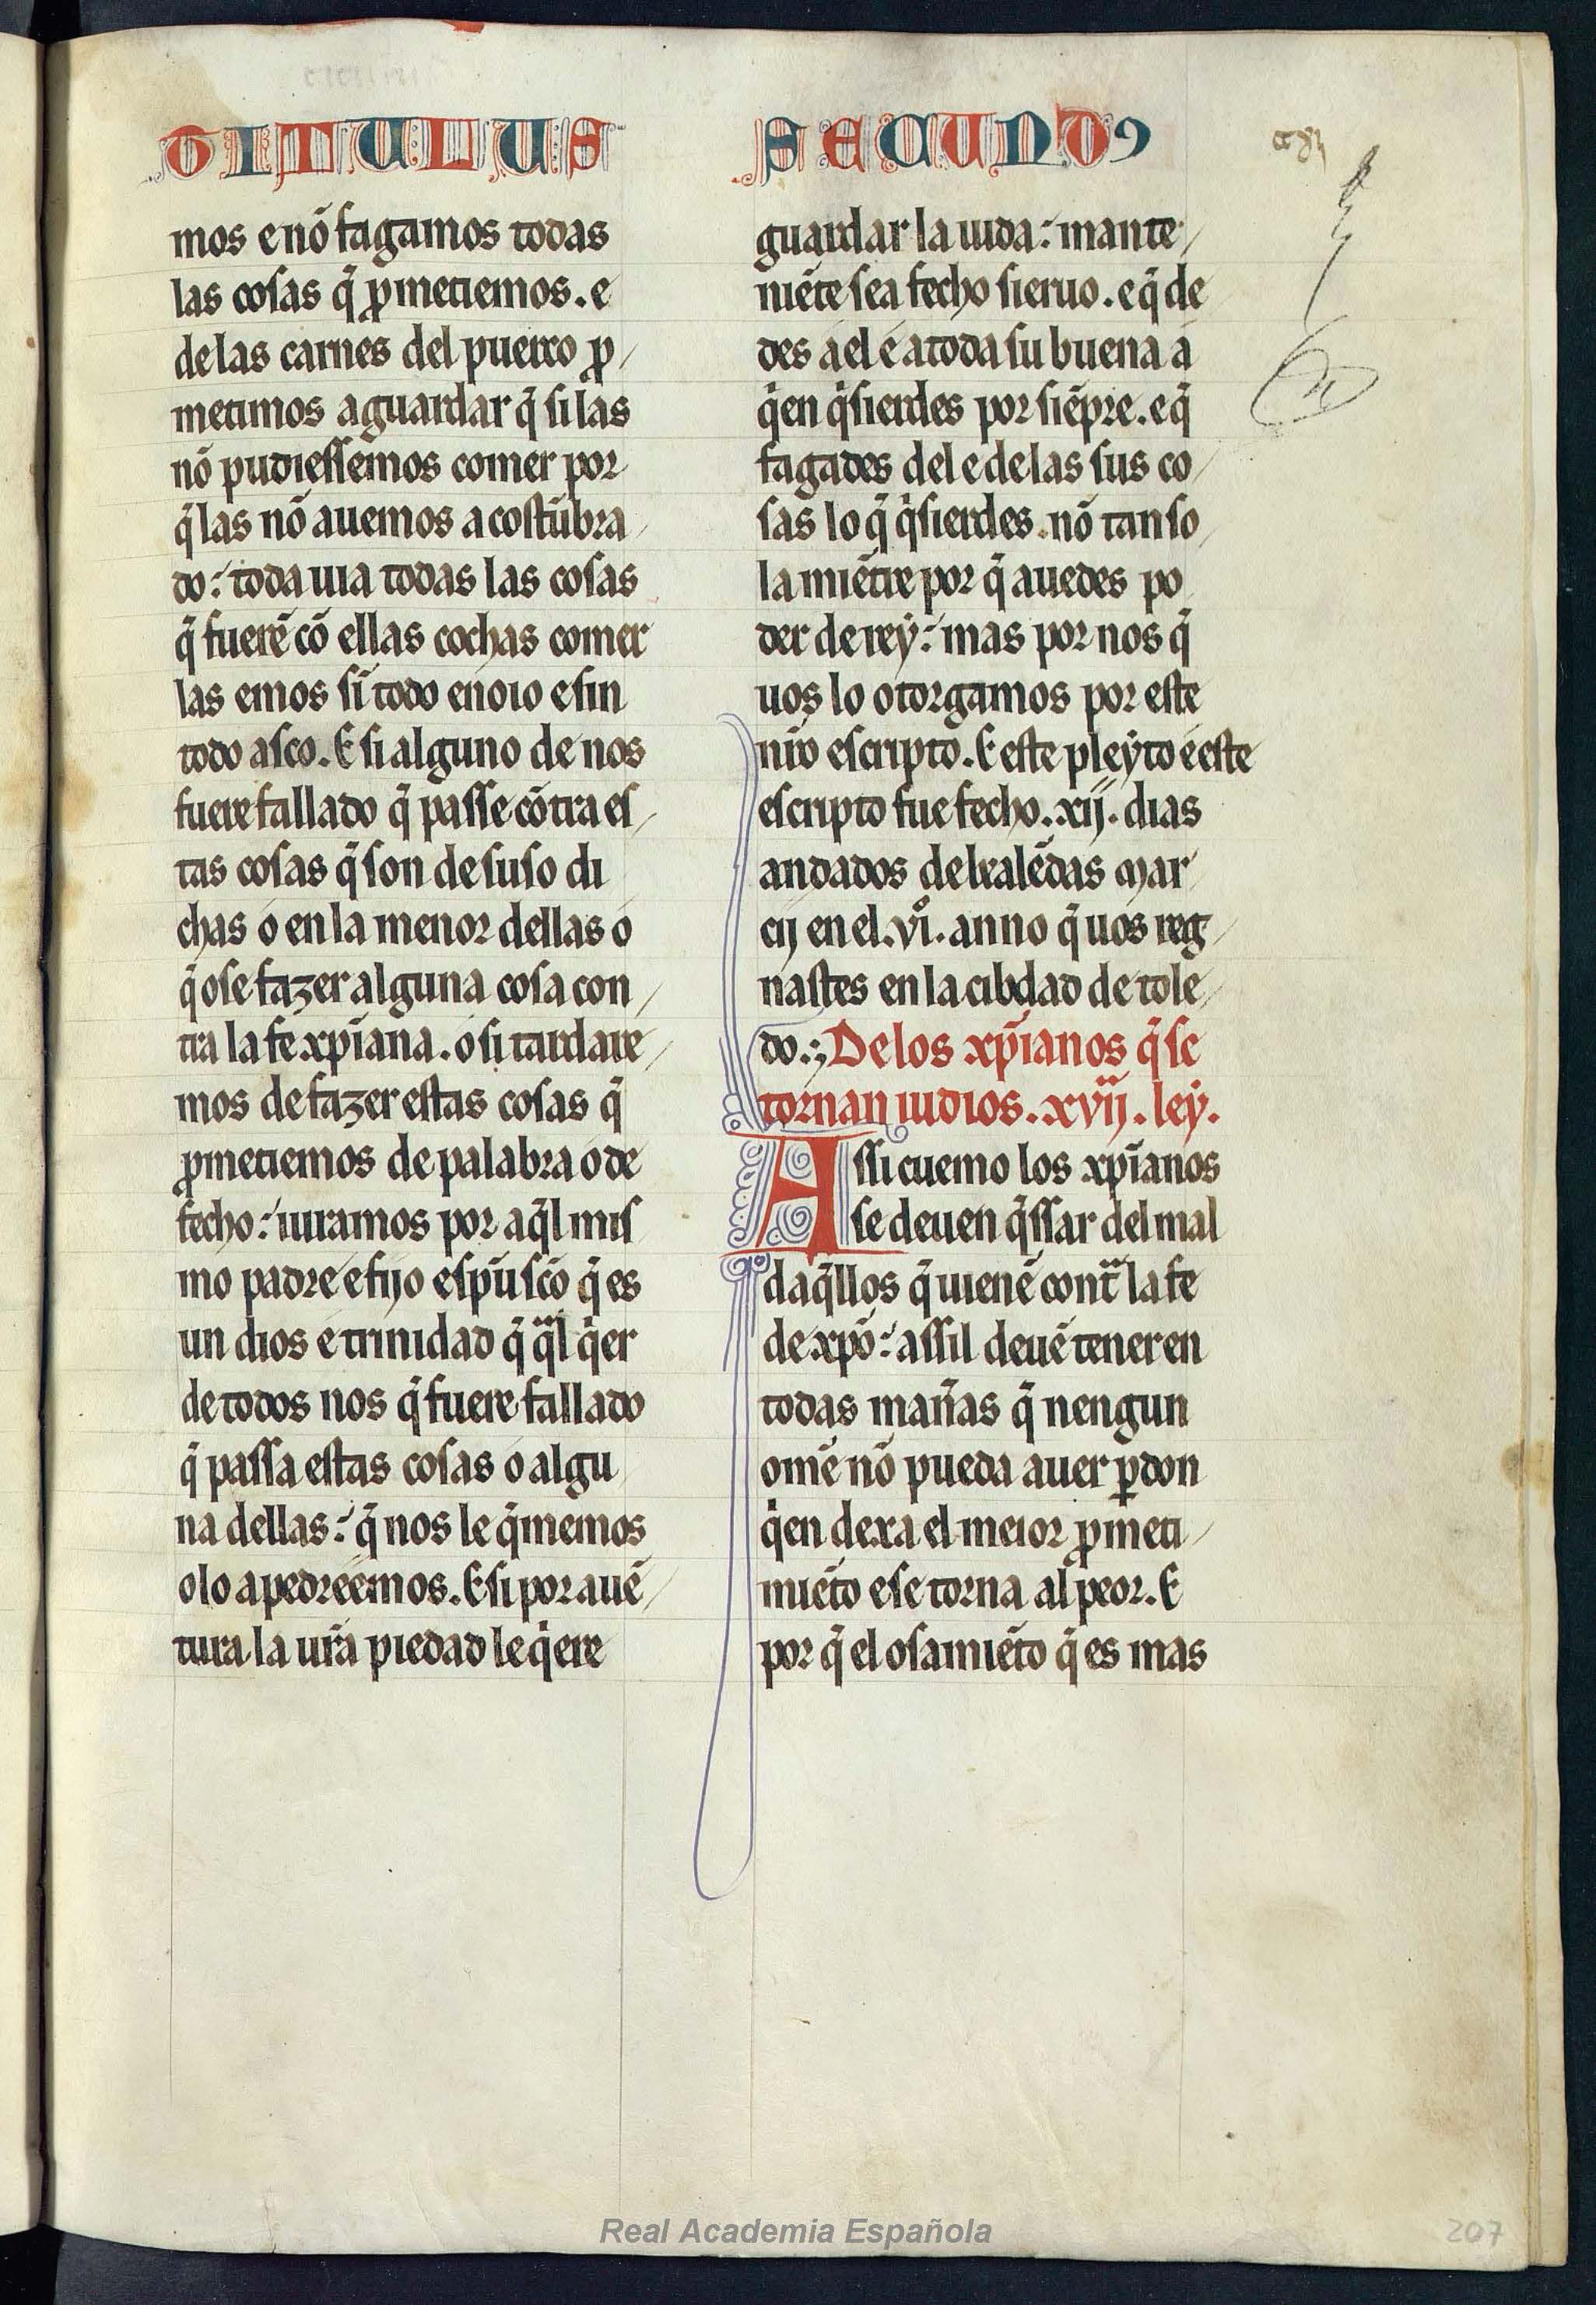 TITULUS SECUNDꝰ
mos e nõ fagamos todas
las cosas q̃ ꝓmetiemos. e
de las carnes del puerco ꝓ/
metimos a guardar q̃ si las
nõ pudiessemos comer por
q̃ las nõ auemos acostũbra/
do: toda uia todas las cosas
q̃ fuerẽ cõ ellas cochas comer
las emos sĩ todo enoio e sin
todo asco. E si alguno de nos
fuere fallado q̃ passe cõtra es/
tas cosas q̃ son de suso di
chas o en la menor dellas o
q̃ ose fazer alguna cosa con/
tra la fe xp̃iana. o si tardare/
mos de fazer estas cosas q̃
ꝓmetiemos de palabra o de
fecho: iuramos por aq̃l mis
mo padre e fijo e sp̃u scõ q̃ es
un dios e trinidad q̃ q̃l q̃er
de todos nos q̃ fuere fallado
q̃ passa estas cosas o algu
na dellas: q̃ nos le q̃memos
o lo apedreemos. E si por auẽ/
tura la ur̃a piedad le q̃ere
guardar la uida: mante/
niẽte sea fecho sieruo. e q̃ de/
des a el e a toda su buena a
q̃en q̃sierdes por siẽpre. e q̃
fagades del e de las sus co/
sas lo q̃ q̃sierdes. nõ tan so/
la miẽtre por q̃ auedes po
der de rey: mas por nos q̃
uos lo otorgamos por este
nr̃o escripto. E este pleyto e este
escripto fue fecho. xij. dias
andados de kalẽdas mar/
cij en el. vi.º anno q̃ uos reg/
nastes en la cibdad de tole/
do.:, De los xp̃ianos q̃ se
tornan iudios. xvij. ley.
Assi cuemo los xp̃ianos
se deuen q̃ssar del mal
daq̃llos q̃ uienẽ contra la fe
de xp̃o: assil deuẽ tener en
todas mañas q̃ nengun
omẽ nõ pueda auer ꝑdon
q̃en dexa el meior ꝓmeti/
miẽto e se torna al peor. E
por q̃ el osamiẽto q̃ es mas
Real Academia Española
207